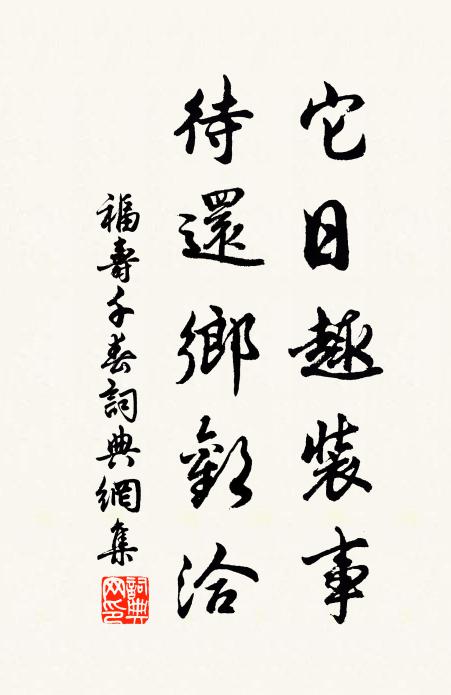 它日趣裝事
待還鄉歡洽
福壽千春詞典網集
詞典
网印